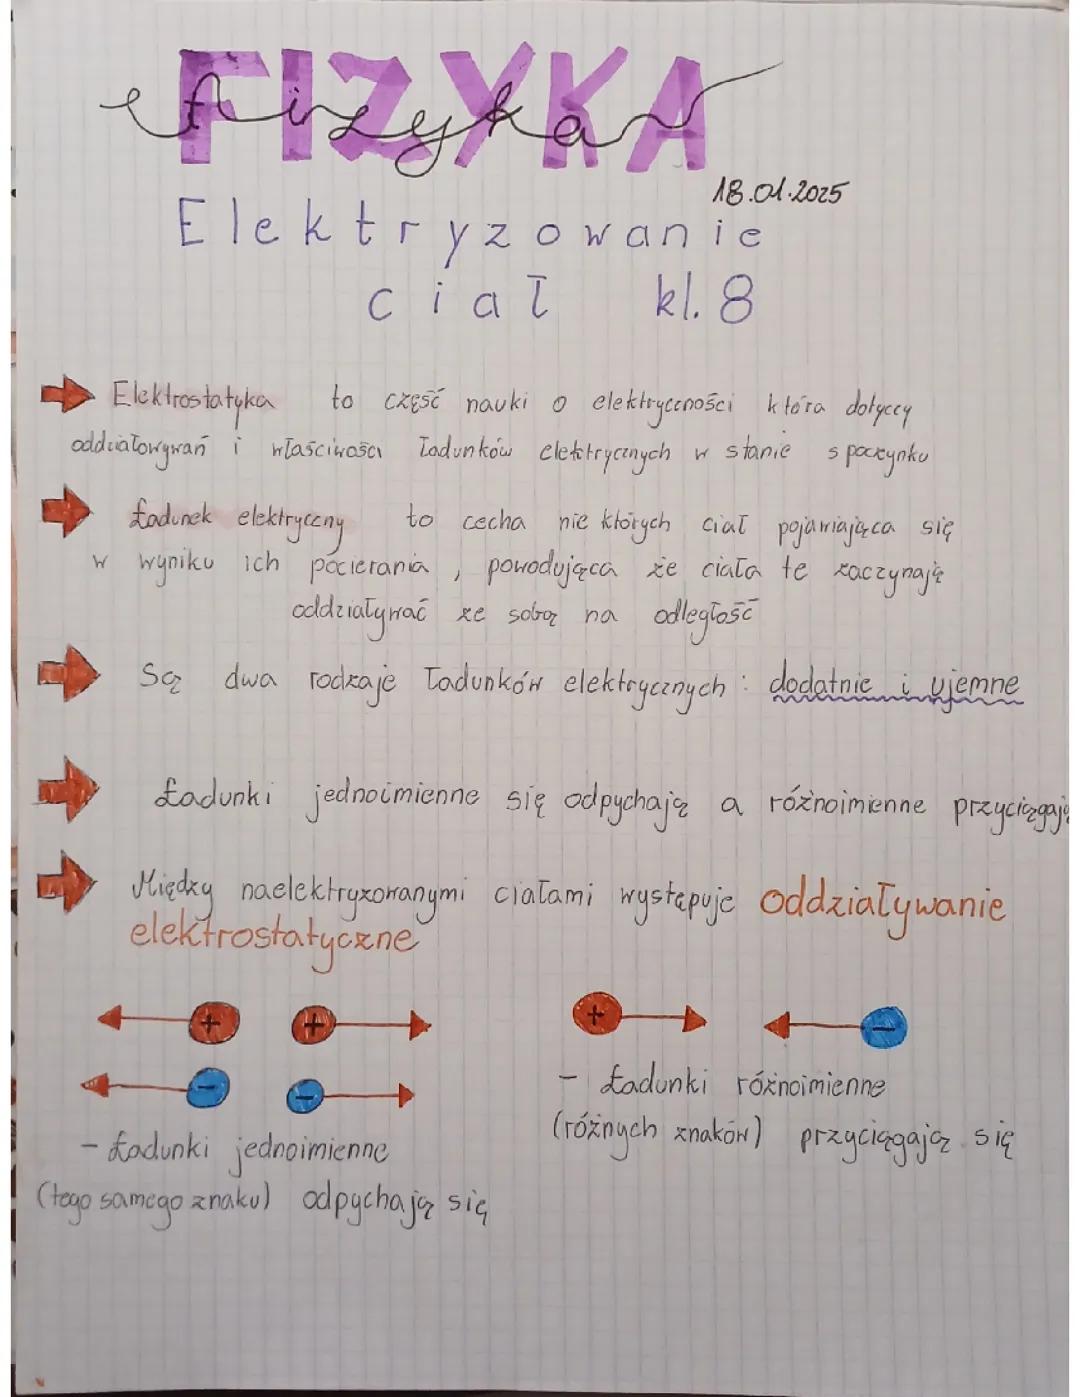 FIZYKA
fizyka
18.01.2025
Elektryzowanie
ciał kl. 8
Elektrostatyka to część nauki o elektryczności która dotyczy
oddziałowywań i właściwości ładunków elektrycznych w stanie spoczynku
Ładunek elektryczny to cecha nie których ciał pojawiająca się
w wyniku ich pocierania, powodująca że ciała te zaczynają
oddziaływać ze sobą na odległość
Są dwa rodzaje ładunków elektrycznych: dodatnie i ujemne
Ładunki jednoimienne się odpychają a różnoimienne przyciągają
Między naelektryzowanymi ciałami występuje oddziaływanie
elektrostatyczne
+ + + -
- -
- Ładunki jednoimienne
(tego samego znaku) odpychają się
- Ładunki różnoimienne
(różnych znaków) przyciągają się